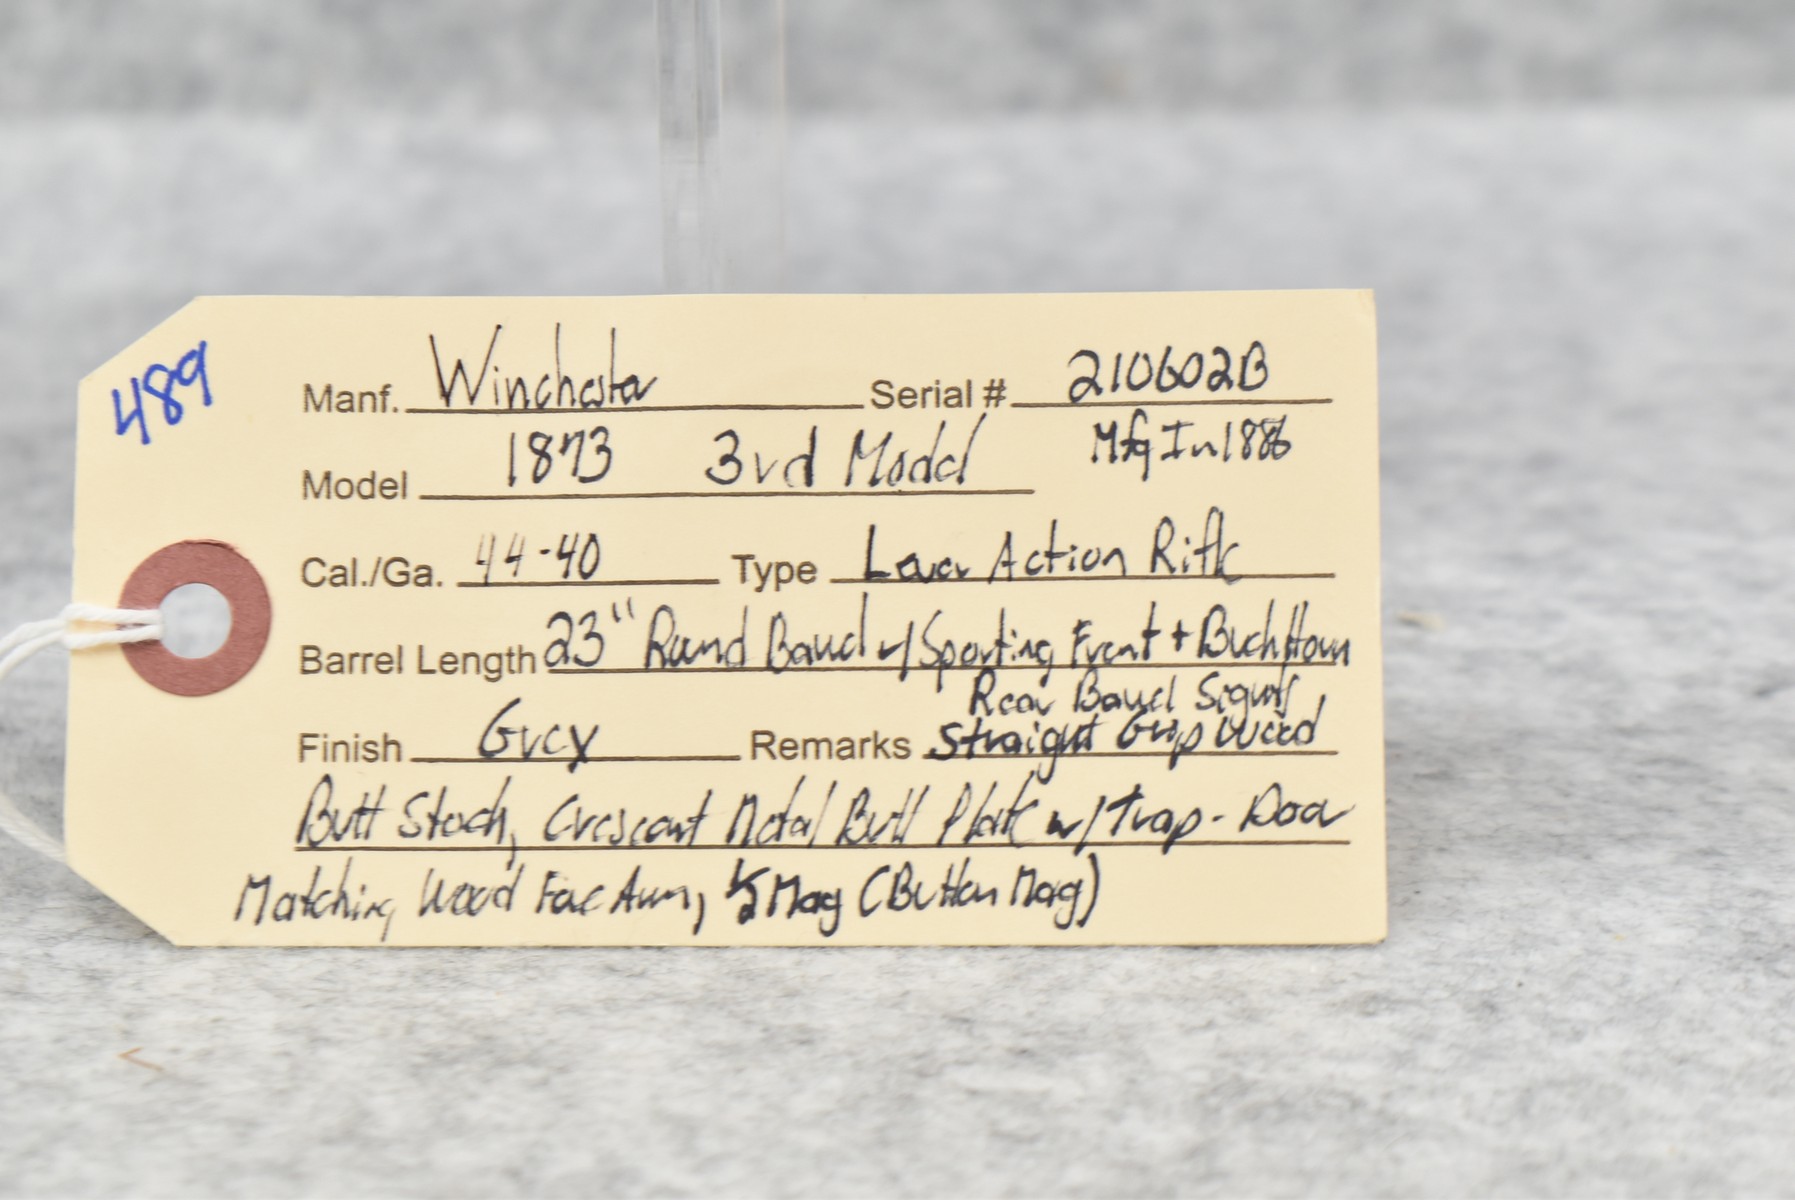 489
Manf. Winchester Serial # 210602B
Model 1873 3rd Model Mfg In 1886
Cal./Ga. 44-40 Type Lever Action Rifle
Barrel Length 23" Round Barrel w/ Sporting Front + Buckhorn
Rear Barrel Sights
Finish Grey Remarks Straight Grip Wood
Butt Stock, Crescent Metal Butt Plate w/ Trap-Door
Matching Wood ForeArm, 1/2 Mag (Button Mag)